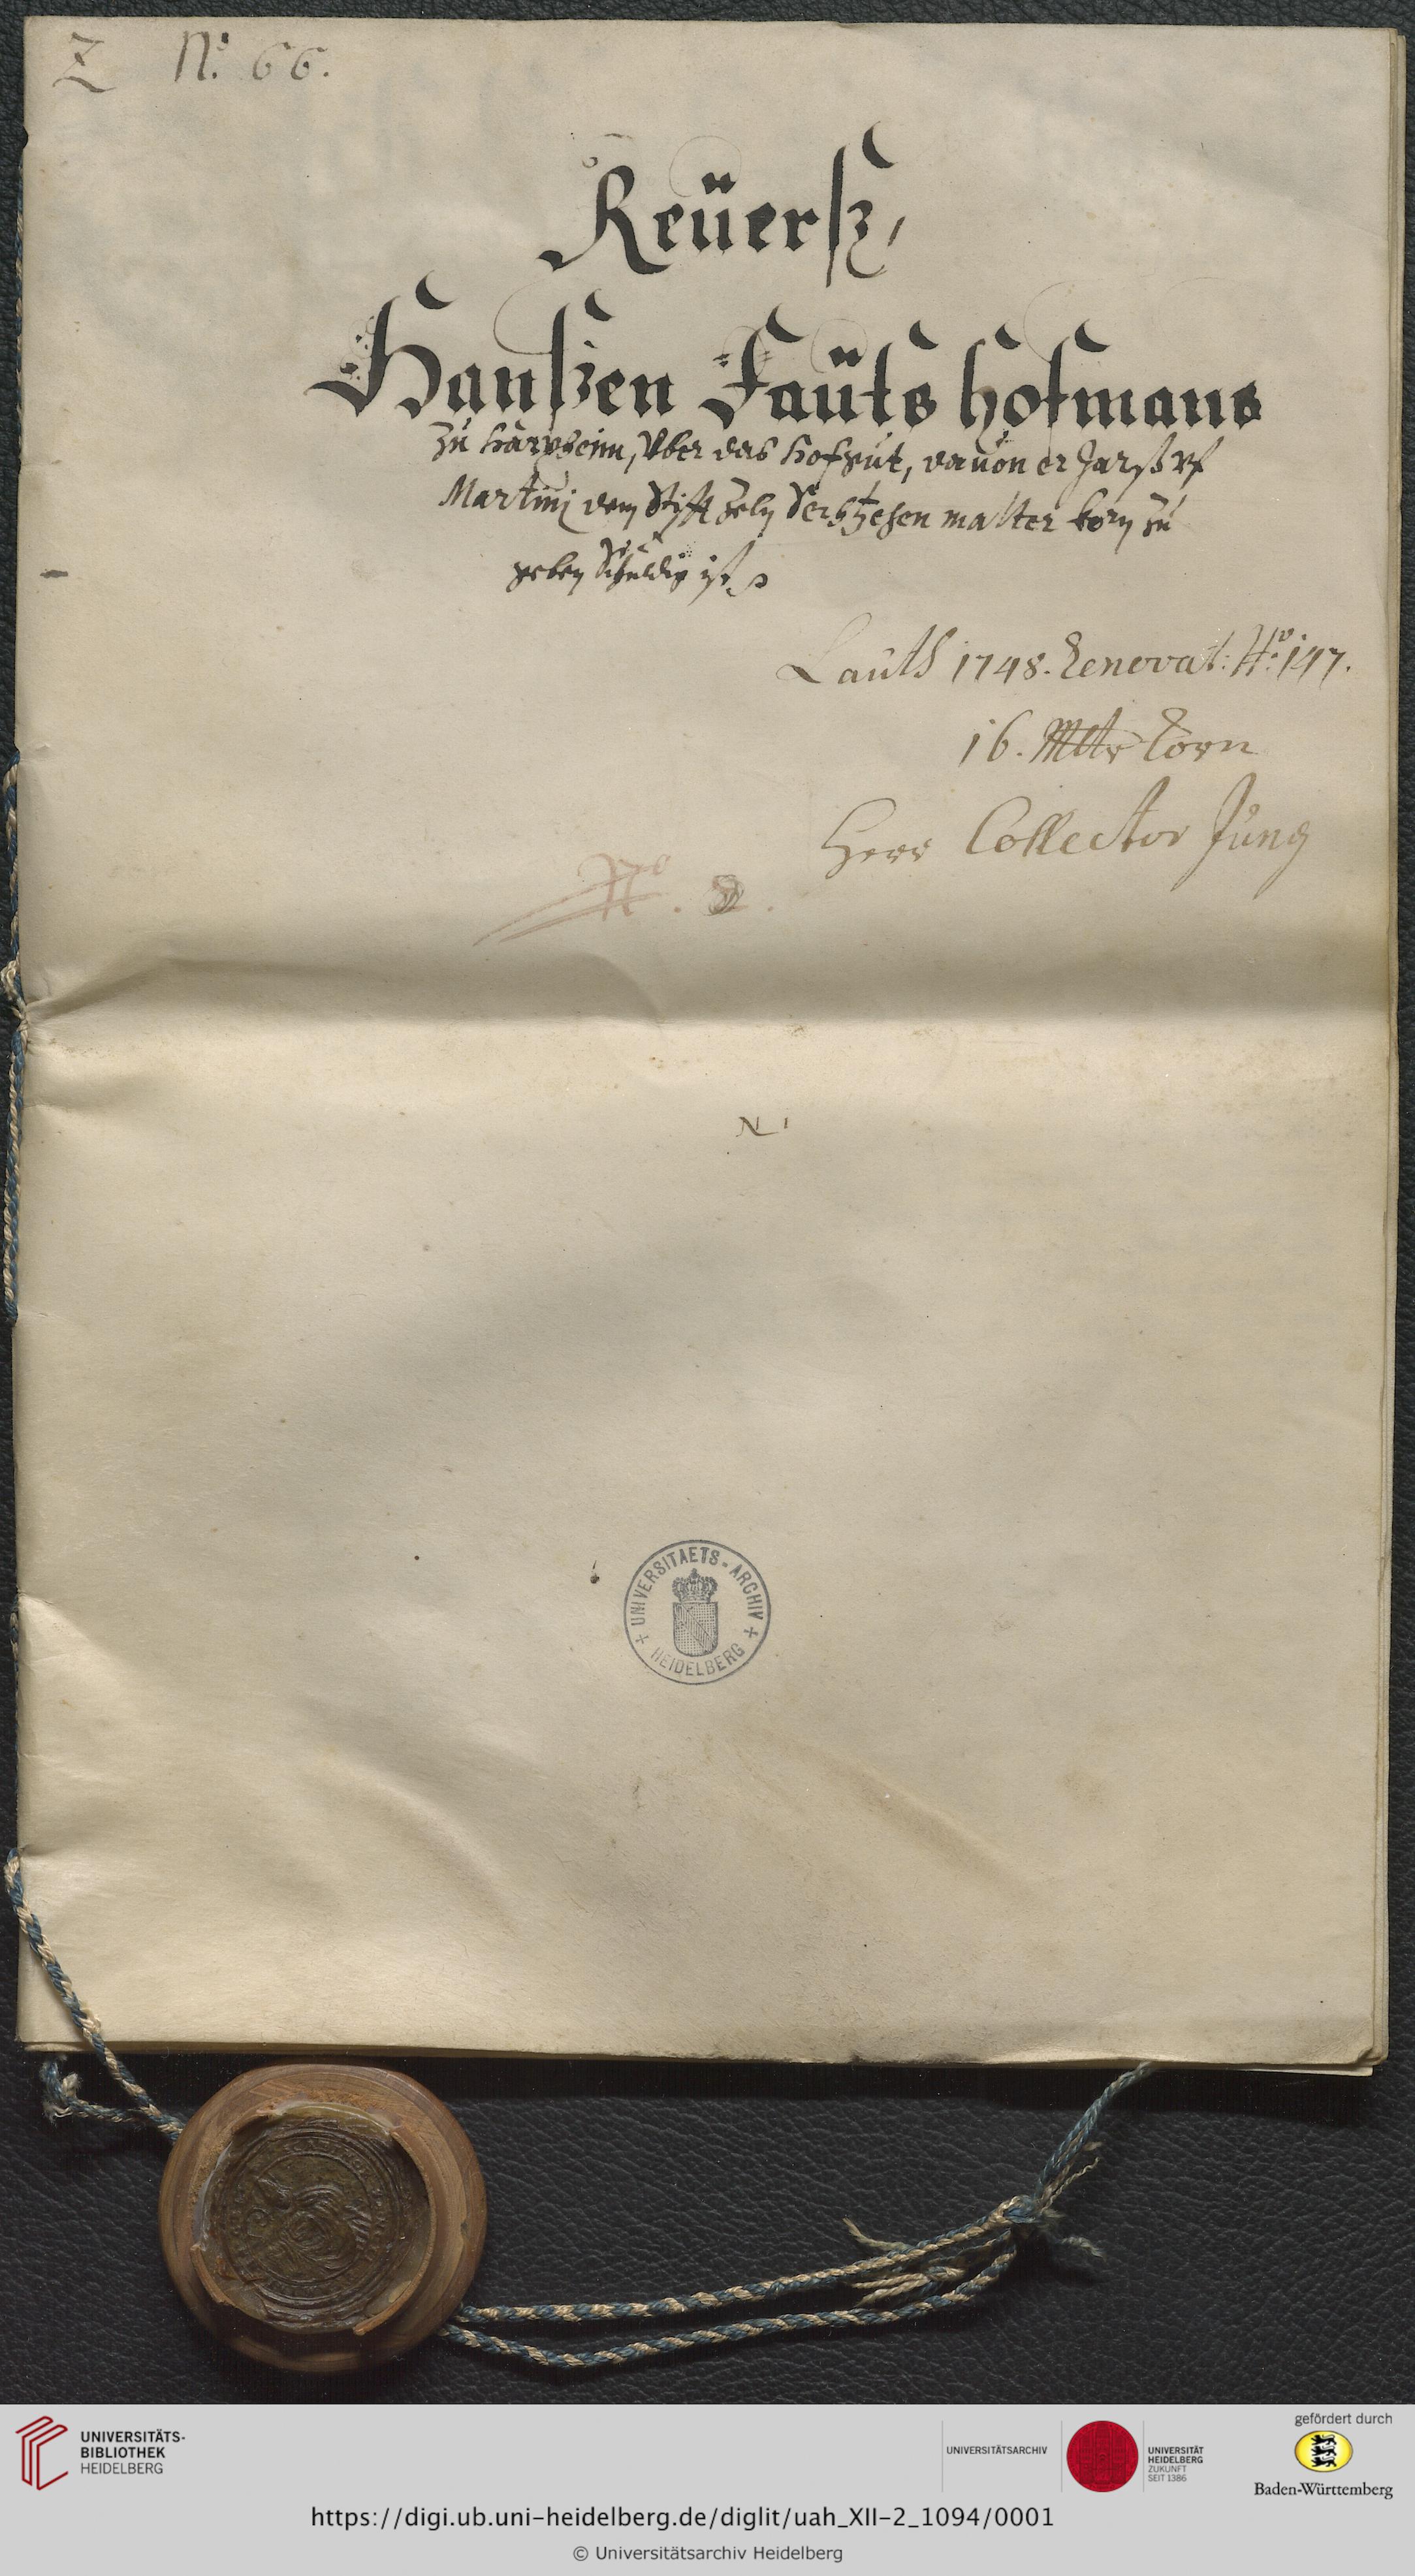 Z No. 66.
Reüersz,
Hanßen Faüts hofmans
Zu Harxheim, Vber das Hofgut, dauon er Jarß vf
Martinj dem Stifft Zeln Sechtzehen malter korn zu
geben Schuldig ist
Lauth 1748. Renovat: No: 147.
16. Mltr Korn
Herr Collector Jung
No.
N 1
UNIVERSITAETS-ARCHIV
HEIDELBERG
UNIVERSITÄTS-
BIBLIOTHEK
HEIDELBERG
UNIVERSITÄTSARCHIV
UNIVERSITÄT
HEIDELBERG
ZUKUNFT
SEIT 1386
gefördert durch
Baden-Württemberg
https://digi.ub.uni-heidelberg.de/diglit/uah_XII-2_1094/0001
© Universitätsarchiv Heidelberg